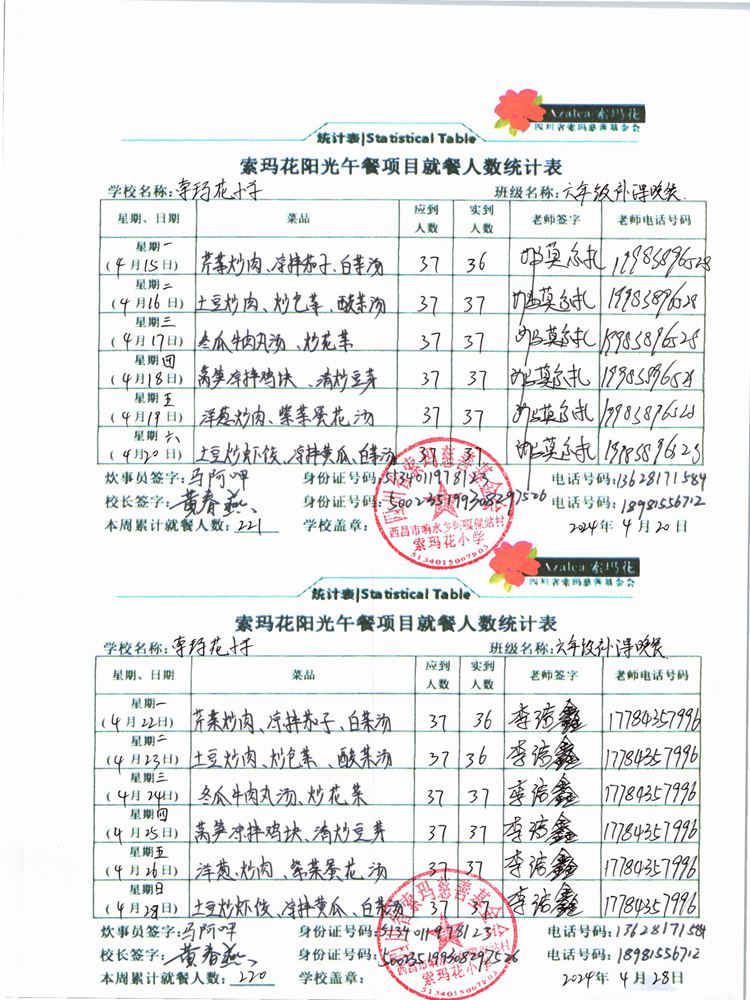 Azalea 索玛花
四川省索玛慈善基金会
统计表|Statistical Table
索玛花阳光午餐项目就餐人数统计表
学校名称:索玛花小学 班级名称:六年级补课晚餐
星期、日期 菜品 应到人数 实到人数 老师签字 老师电话号码
星期一 (4月15日) 芹菜炒肉、凉拌茄子、白菜汤 37 36 19983896528
星期二 (4月16日) 土豆炒肉、炒包菜、酸菜汤 37 37 19983896528
星期三 (4月17日) 冬瓜牛肉丸汤、炒花菜 37 37 19983896528
星期四 (4月18日) 莴笋凉拌鸡块、清炒豆芽 37 37 19983896528
星期五 (4月19日) 洋葱炒肉、紫菜蛋花汤 37 37 19983896528
星期六 (4月20日) 土豆炒虾饺、凉拌黄瓜、白菜汤 37 37 19983896528
炊事员签字:马阿呷 身份证号码: 电话号码:13628171584
校长签字:黄春燕 身份证号码: 电话号码:18981556712
本周累计就餐人数:221 学校盖章: 2024年4月20日
索玛花小学
5134015007803
Azalea 索玛花
四川省索玛慈善基金会
统计表|Statistical Table
索玛花阳光午餐项目就餐人数统计表
学校名称:索玛花小学 班级名称:六年级补课晚餐
星期、日期 菜品 应到人数 实到人数 老师签字 老师电话号码
星期一 (4月22日) 芹菜炒肉、凉拌茄子、白菜汤 37 36 17784357996
星期二 (4月23日) 土豆炒肉、炒包菜、酸菜汤 37 36 17784357996
星期三 (4月24日) 冬瓜牛肉丸汤、炒花菜 37 37 17784357996
星期四 (4月25日) 莴笋凉拌鸡块、清炒豆芽 37 37 17784357996
星期五 (4月26日) 洋葱炒肉、紫菜蛋花汤 37 37 17784357996
星期日 (4月28日) 土豆炒虾饺、凉拌黄瓜、白菜汤 37 37 17784357996
炊事员签字:马阿呷 身份证号码: 电话号码:13628171584
校长签字:黄春燕 身份证号码: 电话号码:18981556712
本周累计就餐人数:220 学校盖章: 2024年4月28日
索玛花小学
5134015007803